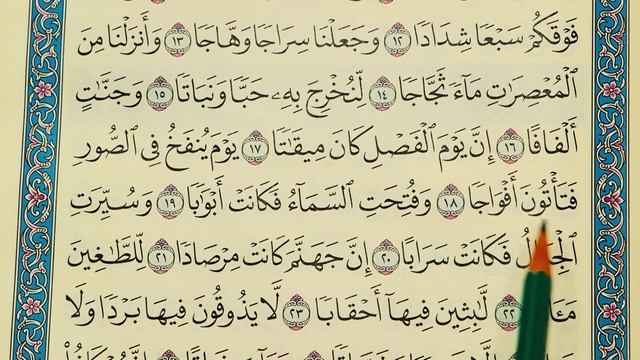 فَوْقَكُمْ سَبْعًا شِدَادًا ١٢ وَجَعَلْنَا سِرَاجًا وَهَّاجًا ١٣ وَأَنزَلْنَا مِنَ
ٱلْمُعْصِرَٰتِ مَآءً ثَجَّاجًا ١٤ لِّنُخْرِجَ بِهِۦ حَبًّا وَنَبَاتًا ١٥ وَجَنَّٰتٍ
أَلْفَافًا ١٦ إِنَّ يَوْمَ ٱلْفَصْلِ كَانَ مِيقَٰتًا ١٧ يَوْمَ يُنفَخُ فِى ٱلصُّورِ
فَتَأْتُونَ أَفْوَاجًا ١٨ وَفُتِحَتِ ٱلسَّمَآءُ فَكَانَتْ أَبْوَٰبًا ١٩ وَسُيِّرَتِ
فَكَانَتْ سَرَابًا ٢٠ إِنَّ جَهَنَّمَ كَانَتْ مِرْصَادًا ٢١ لِّلطَّٰغِينَ
٢٢ لَّٰبِثِينَ فِيهَآ أَحْقَابًا ٢٣ لَّا يَذُوقُونَ فِيهَا بَرْدًا وَلَا